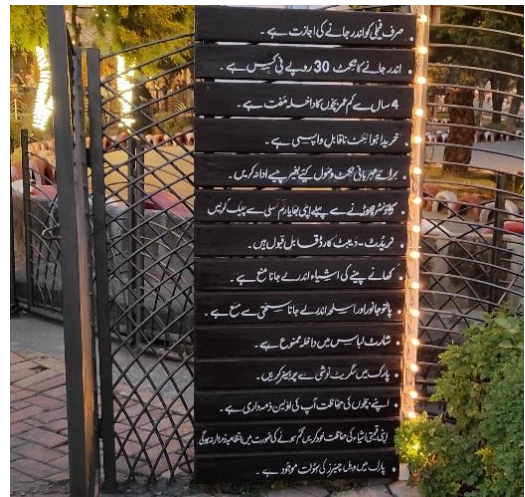 • صرف فیملی کو اندر جانے کی اجازت ہے ۔
• اندر جانے کا ٹکٹ 30 روپے فی کس ہے ۔
• 4 سال سے کم عمر بچوں کا داخلہ مفت ہے ۔
• خریدا ہوا ٹکٹ ناقابل واپسی ہے ۔
• برائے مہربانی ٹکٹ وصول کیئے بغیر پیسے ادا نہ کریں ۔
• کاؤنٹر چھوڑنے سے پہلے اپنی بقایا رقم تسلی سے چیک کرلیں
• کریڈٹ - ڈیبٹ کارڈ قابل قبول ہیں ۔
• کھانے پینے کی اشیاء اندر لے جانا منع ہے ۔
• پالتو جانور اور اسلحہ اندر لے جانا سختی سے منع ہے ۔
• شارٹ لباس میں داخلہ ممنوع ہے ۔
• پارک میں سگریٹ نوشی سے پرہیز کریں ۔
• اپنے بچوں کی حفاظت آپ کی اولین ذمہ داری ہے ۔
• اپنی قیمتی اشیاء کی حفاظت خود کریں گم ہونے کی صورت میں انتظامیہ ذمہ دار نہ ہوگی
• پارک میں ویل چیئرز کی سہولت موجود ہے ۔